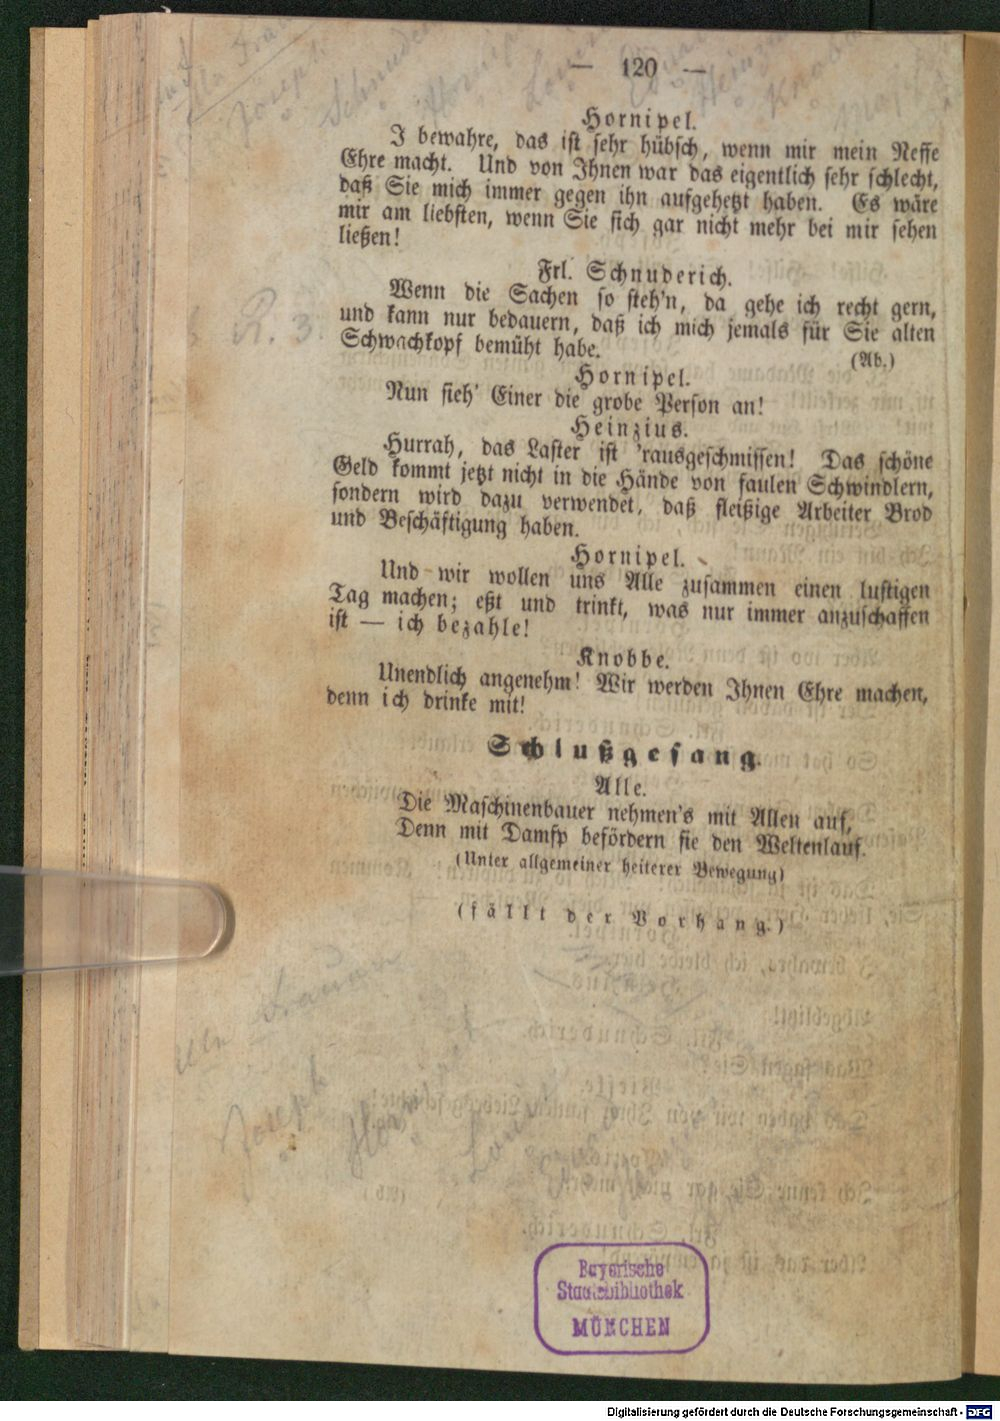 — 120 —
Hornipel.
I bewahre, das ist sehr hübsch, wenn mir mein Neffe
Ehre macht. Und von Ihnen war das eigentlich sehr schlecht,
daß Sie mich immer gegen ihn aufgehetzt haben. Es wäre
mir am liebsten, wenn Sie sich gar nicht mehr bei mir sehen
ließen!
Frl. Schnuderich.
Wenn die Sachen so steh'n, da gehe ich recht gern,
und kann nur bedauern, daß ich mich jemals für Sie alten
Schwachkopf bemüht habe.
(Ab.)
R. 3.
Hornipel.
Nun sieh' Einer die grobe Person an!
Heinzius.
Hurrah, das Laster ist 'rausgeschmissen! Das schöne
Geld kommt jetzt nicht in die Hände von faulen Schwindlern,
sondern wird dazu verwendet, daß fleißige Arbeiter Brod
und Beschäftigung haben.
Hornipel.
Und wir wollen uns Alle zusammen einen lustigen
Tag machen; eßt und trinkt, was nur immer anzuschaffen
ist — ich bezahle!
Knobbe.
Unendlich angenehm! Wir werden Ihnen Ehre machen,
denn ich drinke mit!
Schlußgesang.
Alle.
Die Maschinenbauer nehmen's mit Allen auf,
Denn mit Damfp befördern sie den Weltenlauf.
(Unter allgemeiner heiterer Bewegung)
(fällt der Vorhang.)
Joseph
Bayerische
Staatsbibliothek
MÜNCHEN
Digitalisierung gefördert durch die Deutsche Forschungsgemeinschaft - DFG